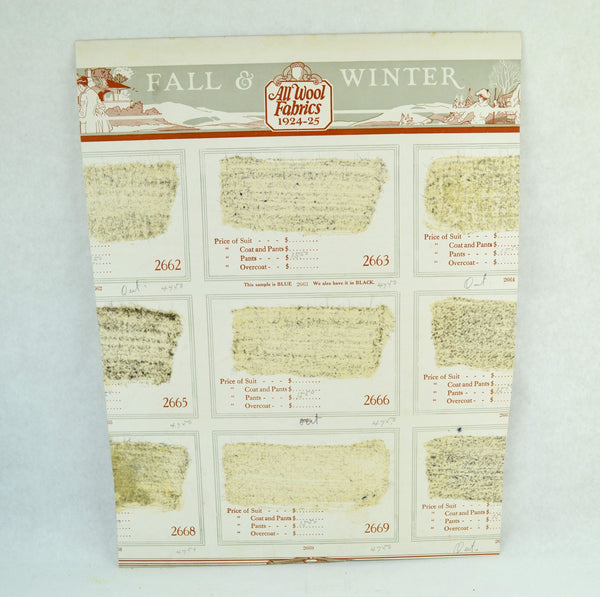 FALL & WINTER
All Wool
Fabrics
1924-25
2662
Price of Suit - - - $........
" Coat and Pants $........
" Pants - - - - $........
" Overcoat - - $........
2663
Price of Suit - - - $
" Coat and Pants $
" Pants - - - - $
" Overcoat - - $
Out.
4750
This sample is BLUE 2663 We also have it in BLACK.
4750
2664
Out
2665
Price of Suit - - - $........
" Coat and Pants $........
" Pants - - - - $........
" Overcoat - - $........
2666
Price of Suit - - - $
" Coat and Pants $
" Pants - - - - $
" Overcoat - - $
4750
out
4750
2668
Price of Suit - - - $........
" Coat and Pants $........
" Pants - - - - $........
" Overcoat - - $........
2669
Price of Suit - - - $
" Coat and Pants $
" Pants - - - - $
" Overcoat - - $
4750
2669
4750
Out.